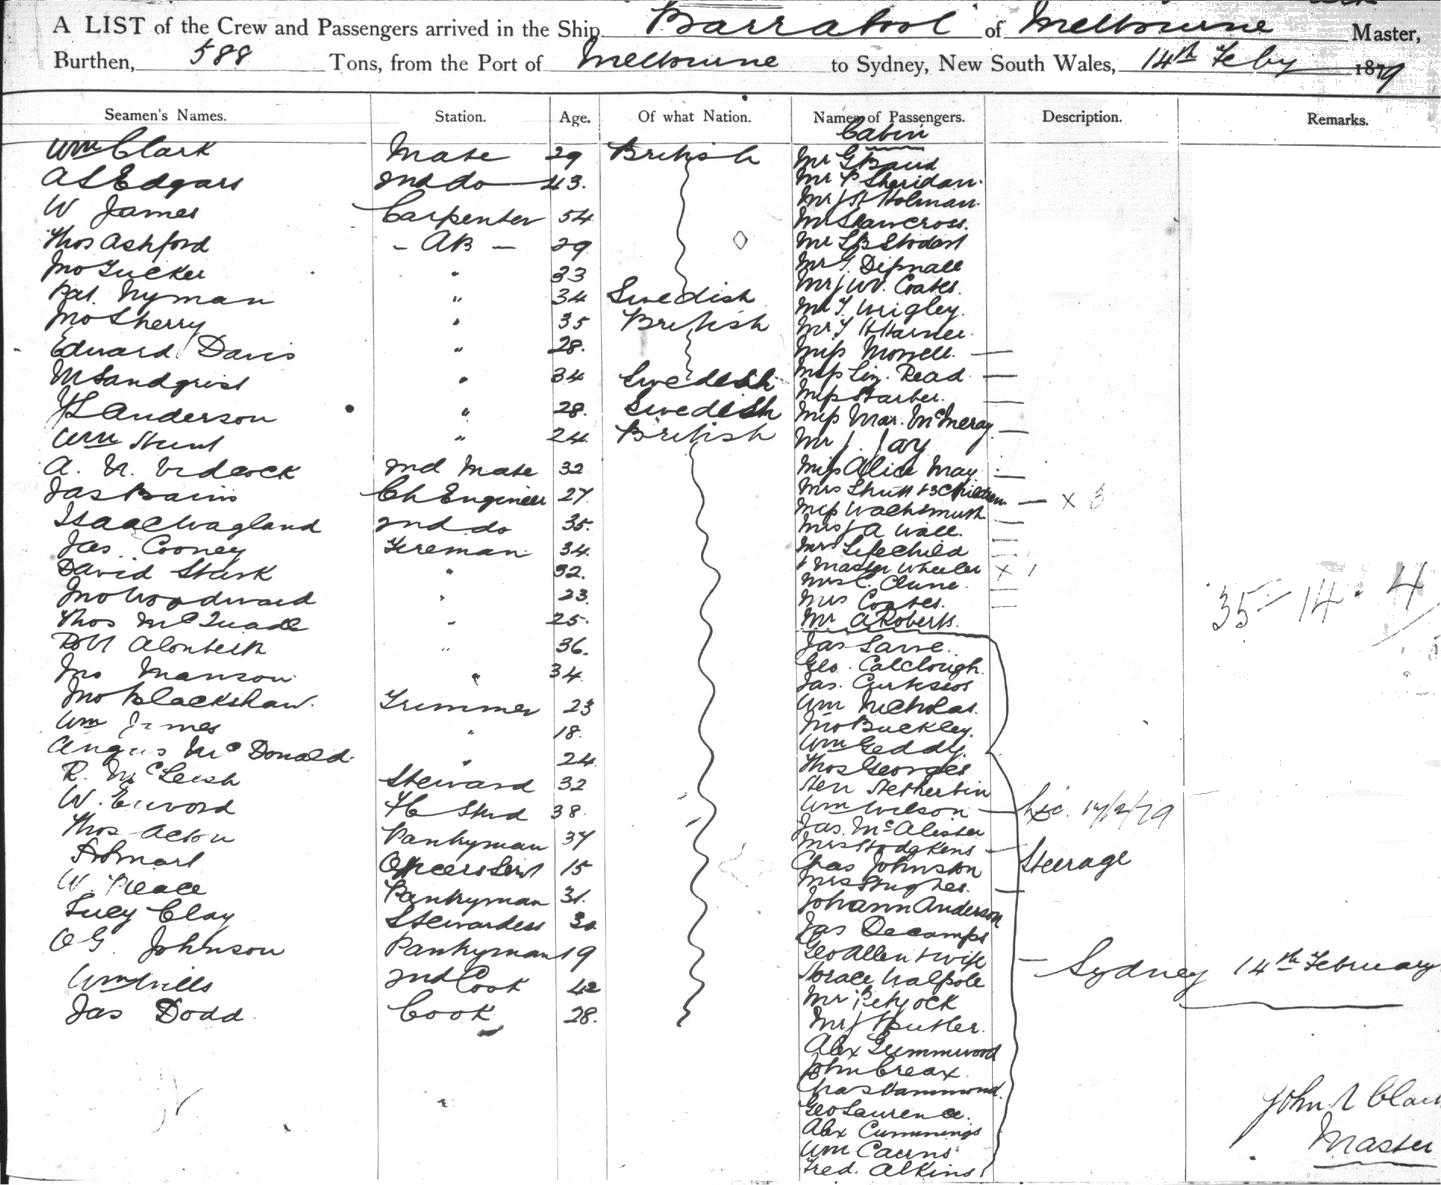 A LIST of the Crew and Passengers arrived in the Ship Barrabool of Melbourne Master,
Burthen, 588 Tons, from the Port of Melbourne to Sydney, New South Wales, 14th Feby 1879
Seamen's Names. Station. Age. Of what Nation. Names of Passengers. Description. Remarks.
Cabin
Wm Clark Mate 29 British
A S Edgars 2nd do 43.
W James Carpenter 54
Thos Ashford - AB - 29
Jno Tucker " 33
Pat. Nyman " 34 Swedish
Jno Sherry " 35 British
Edward Davis " 28.
M Sandqrist " 34 Swedish
Anderson " 28. Swedish
Wm Hunt " 24 British
A. N. 2nd Mate 32
Jas Bains Ch Engineer 27.
Isaac Wagland 2nd do 35.
Jas. Cooney Fireman 34.
David Stark " 32.
Jno Woodward " 23
Thos McQuade " 25.
" 36.
Jno Manson " 34
Jno Blackshaw. Trimmer 23
Wm James " 18.
Angus McDonald. " 24
R. McLeish Steward 32
W. 38.
Thos Acton Pantryman 37
Smart Officers Servt 15
W. Pantryman 31.
Lucy Clay Stewardess
O G Johnson Pantryman 19
Wm Mills 2nd Cook 42
Jas Dodd Cook 28.
Mr G Baud
Mr P Sheridan.
Mr J H Holman.
Mr Shawcross.
Mr Stodart
Mr G. Dipnall
Mr J W. Coates.
Mr T. Wrigley.
Mr T H
Miss Morrell.
Miss Liz. Read
Miss Barber.
Miss Mar.
Mr J. Jay
Miss Alice May
Mrs Shutt & 3 Children × 3
Miss Wachsmuth
Mrs J A Wall.
Mrs Lifechild
& Master Wheeler × 1
Mrs C. Clune.
Mrs Coates.
Mr A Roberts.
Jas
Geo. Calclough.
Jas.
Wm Nicholas.
Jno Buckley.
Wm Geddy.
Thos Georges
Wm Wilson 14/2/79
Jas. McAlister
Mrs Hodgkens
Chas Johnston Steerage
Mrs Hughes.
Johann Anderson
Jas Decamps
Geo Allen & wife
Horace Walpole
Mr
Mr J H Butler.
Alex
John Creax.
Chas Hammond.
Geo Laurence.
Alex Cummings
Wm Cairns
Fred. Alkins
35 - 14 . 4
Sydney 14th February
John Clark
Master